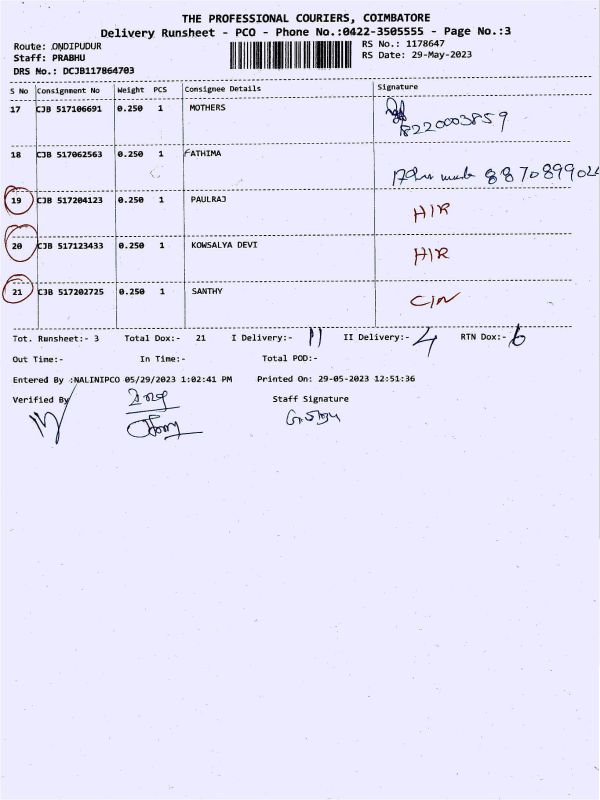 THE PROFESSIONAL COURIERS, COIMBATORE
Delivery Runsheet - PCO - Phone No.:0422-3505555 - Page No.:3
Route: ONDIPUDUR
RS No.: 1178647
Staff: PRABHU
RS Date: 29-May-2023
DRS No.: DCJB117864703
S No Consignment No Weight PCS Consignee Details Signature
17 CJB 517106691 0.250 1 MOTHERS
8220003859
18 CJB 517062563 0.250 1 FATHIMA
19 CJB 517204123 0.250 1 PAULRAJ H/R
20 CJB 517123433 0.250 1 KOWSALYA DEVI H/R
21 CJB 517202725 0.250 1 SANTHY C/N
Tot. Runsheet:- 3 Total Dox:- 21 I Delivery:- 11 II Delivery:- 4 RTN Dox:- 6
Out Time:- In Time:- Total POD:-
Entered By :NALINIPCO 05/29/2023 1:02:41 PM Printed On: 29-05-2023 12:51:36
Verified By Staff Signature